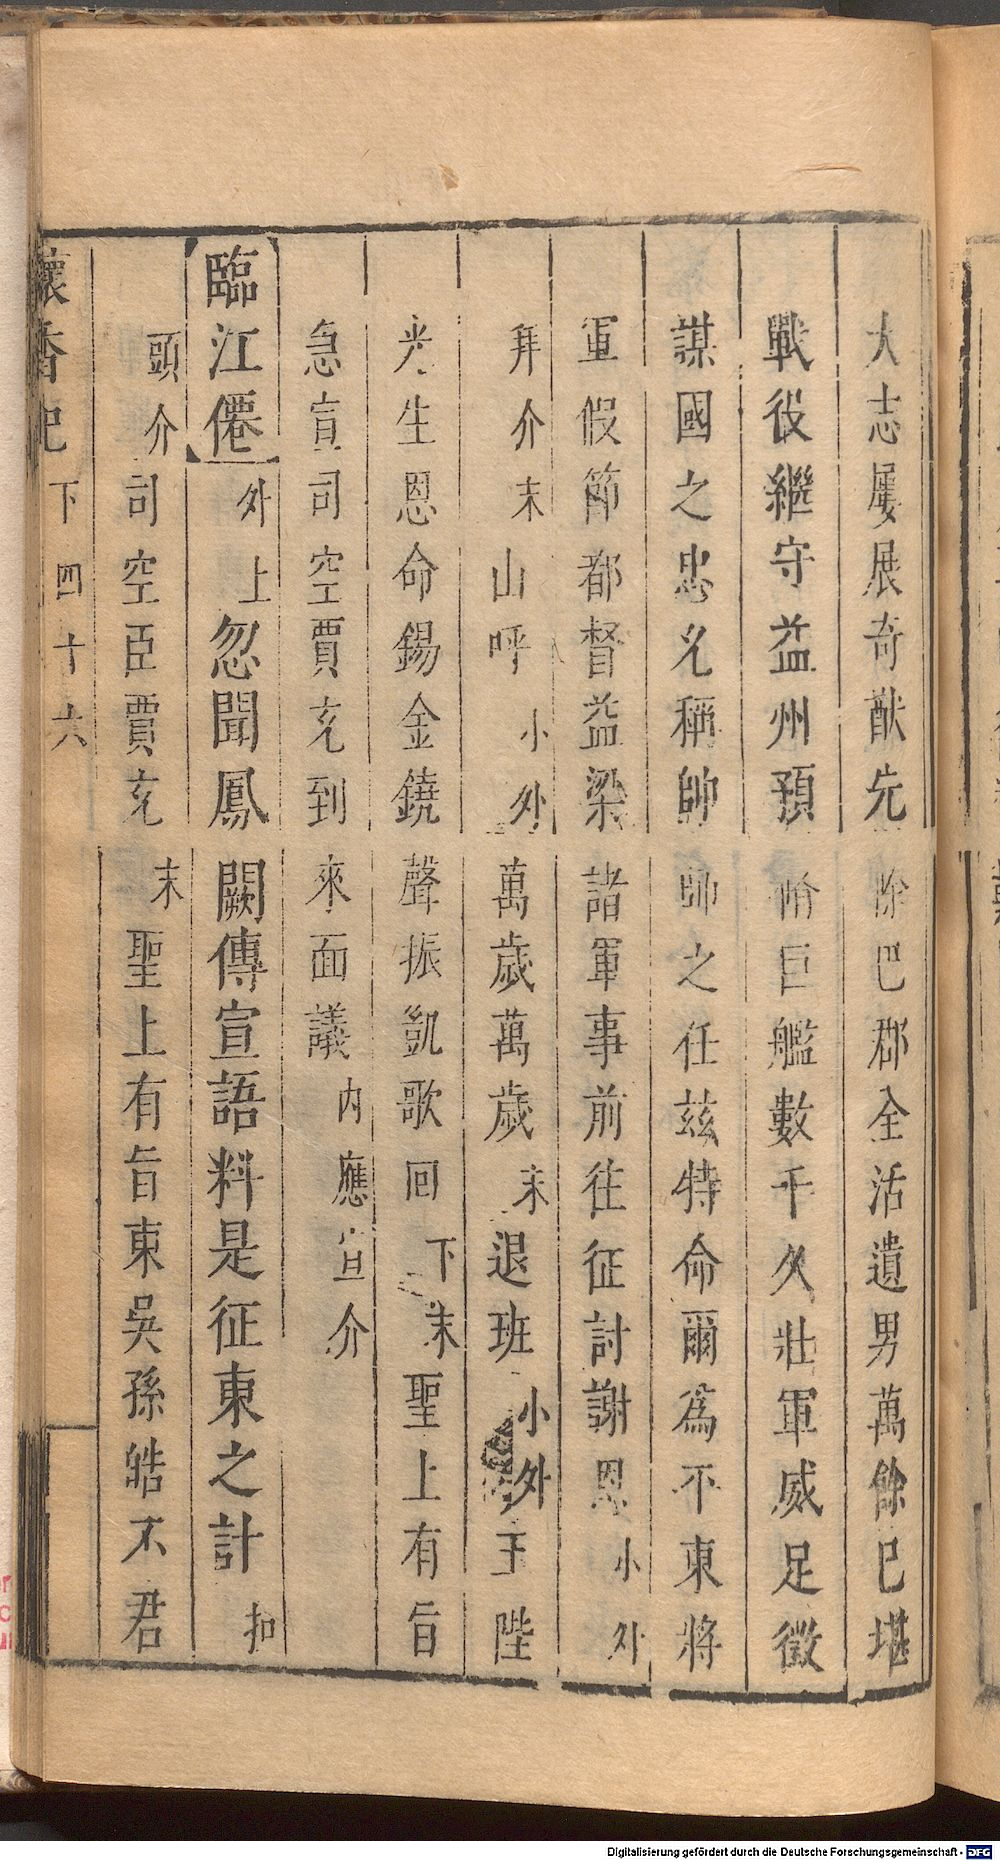 大志屢展奇猷先除巴郡全活遺男萬餘已堪
戰役繼守益州預脩巨艦數千久壯軍威足徵
謀國之忠允稱帥師之任茲特命爾爲不東將
軍假節都督益梁諸軍事前往征討謝恩小外
拜介末山呼小外萬歲萬歲末退班小外王陛
光生恩命錫金鐃聲振凱歌回下末聖上有旨
急宣司空賈充到來面議内應宣介
臨江僊外上忽聞鳳闕傳宣語料是征東之計扣
頭介司空臣賈充末聖上有旨東吳孫皓不君
懷香記下四十六
Digitalisierung gefördert durch die Deutsche Forschungsgemeinschaft - DFG